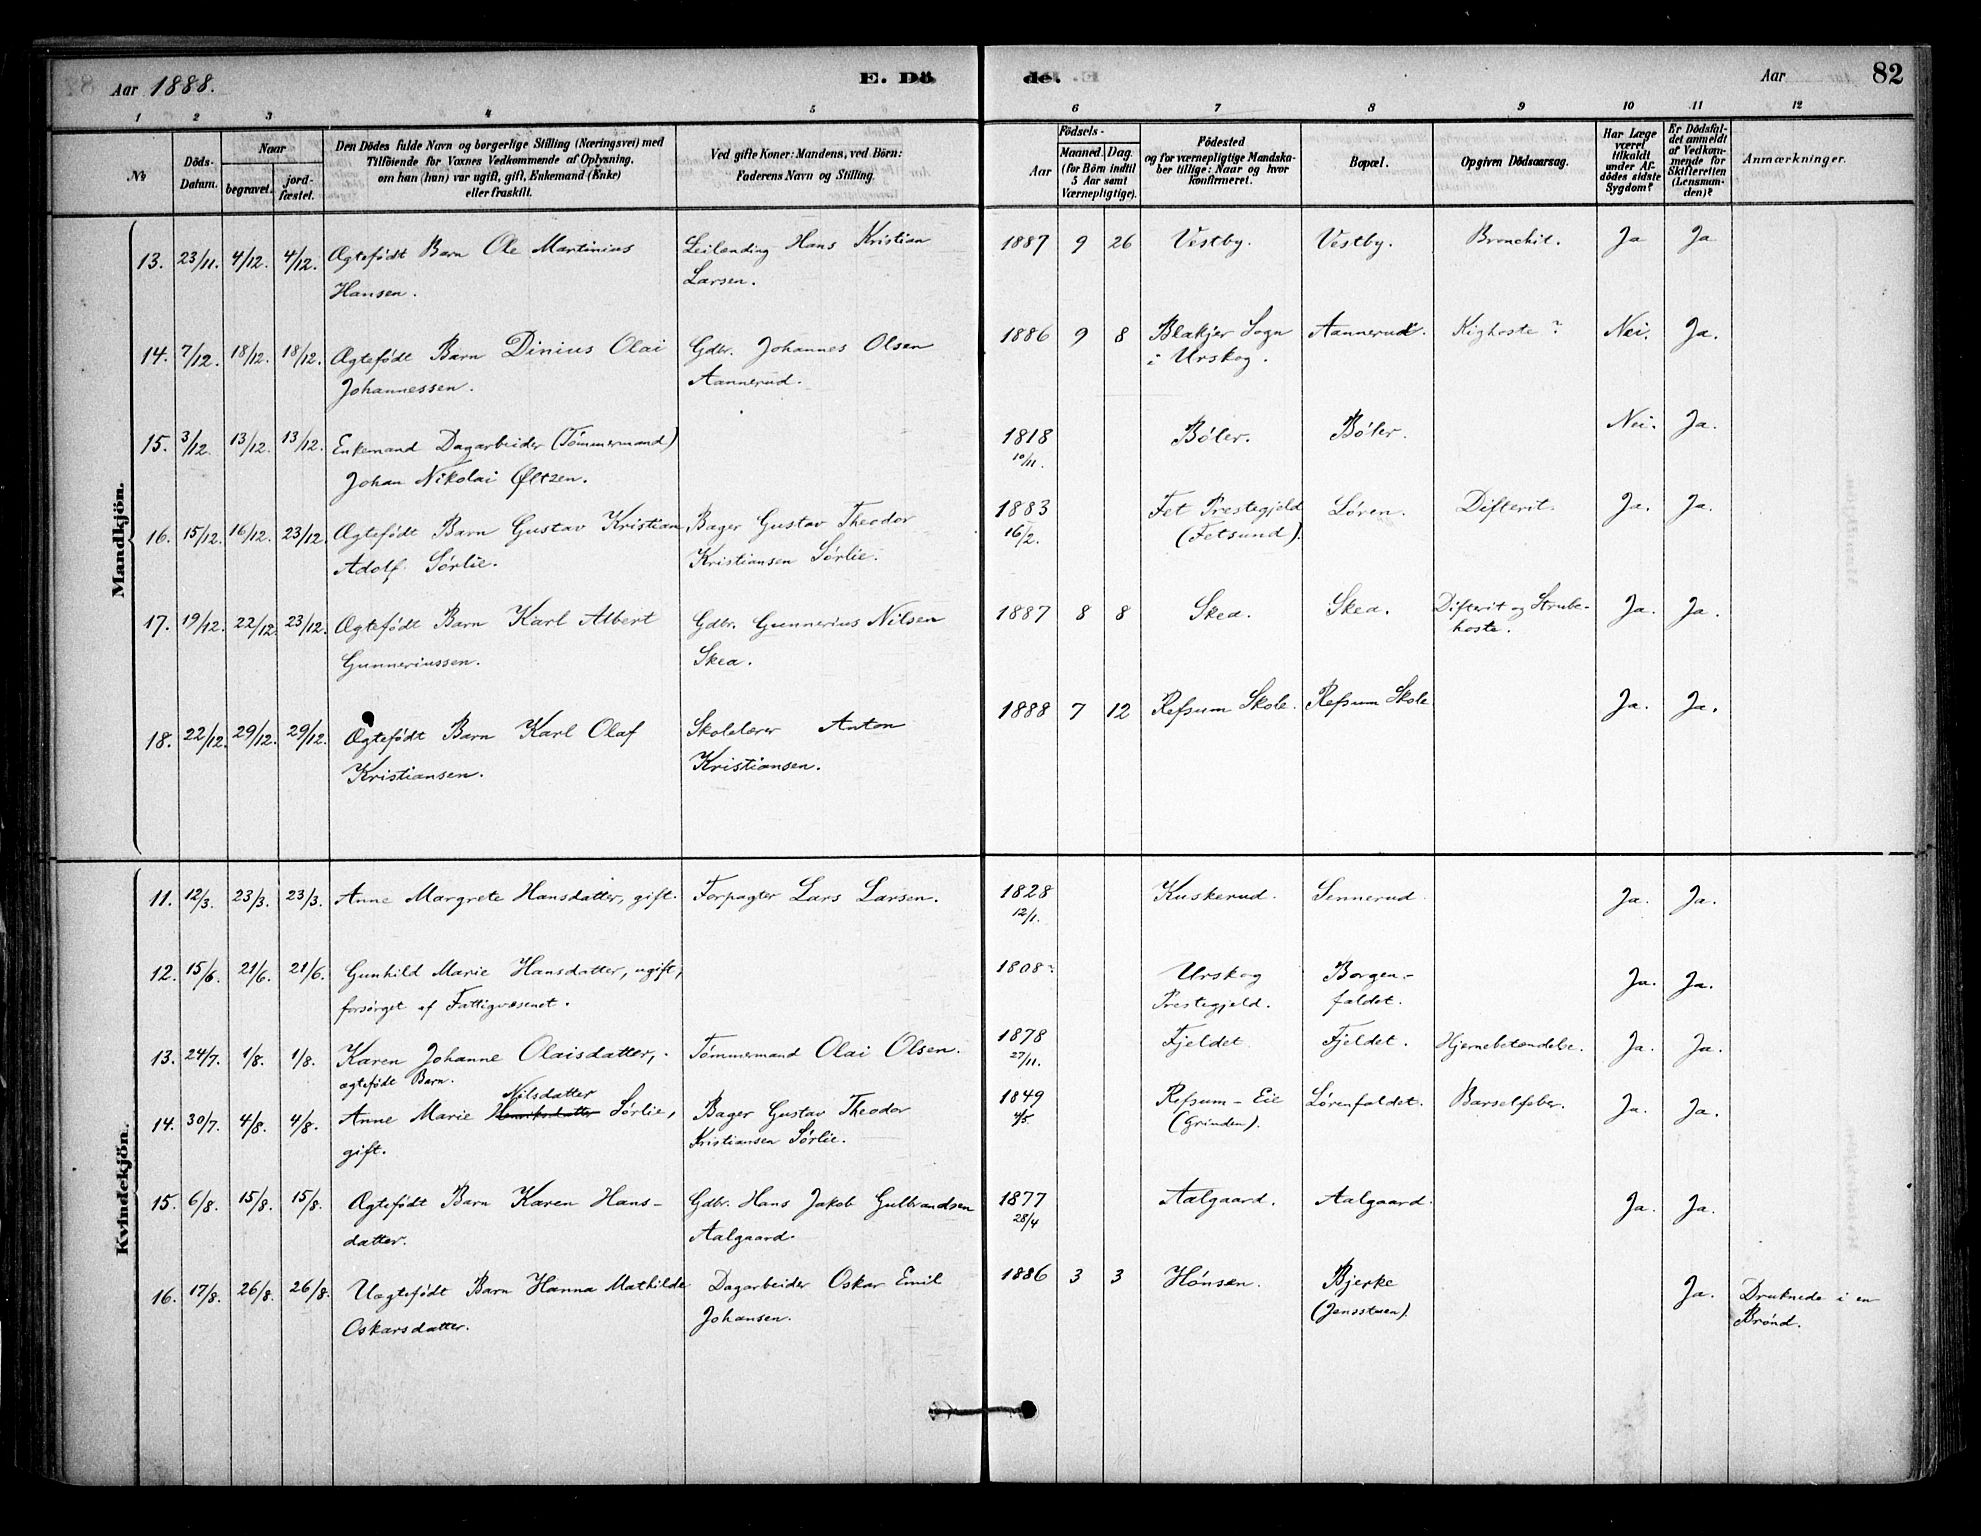 Aar 1888.
E. Dö
de.
Aar
82
1 2 3 4 5 6 7 8 9 10 11 12
No
Döds-
Datum.
Naar
begravet.
jord-
fæstet.
Den Dödes fulde Navn og borgerlige Stilling (Næringsvei) med
Tilföiende for Voxnes Vedkommende af Oplysning,
om han (hun) var ugift, gift, Enkemand (Enke)
eller fraskilt.
Ved gifte Koner: Mandens, ved Börn:
Faderens Navn og Stilling.
Födsels-
Aar
Maaned. Dag.
(for Börn indtil
5 Aar samt
Værnepligtige).
Födested
og for værnepligtige Mandska-
ber tillige: Naar og hvor
konfirmeret.
Bopæl.
Opgiven Dödsaarsag.
Har Læge
været
tilkaldt
under Af-
dödes sidste
Sygdom?
Er Dödsfal-
det anmeldt
af Vedkom-
mende for
Skifteretten
(Lensman-
den)?
Anmærkninger.
Mandkjön.
13. 23/11. 4/12. 4/12. Ægtefödt Barn Ole Martinius Leilending Hans Kristian 1887 9 26 Vestby. Vestby. Bronchit. Ja Ja
Hansen. Larsen.
14. 7/12. 18/12. 18/12. Ægtefødt Barn Dinius Olai Gdbr. Johannes Olsen 1886 9 8 Blakjer Sogn Aannerud. Kighoste? Nei. Ja.
Johannessen. Aannerud. i Urskog.
15. 3/12. 13/12. 13/12. Enkemand Dagarbeider (Tømmermand) 1818 Bøler. Bøler. Nei. Ja.
Johan Nikolai Øltzen. 10/11.
16. 15/12. 16/12. 23/12. Ægtefødt Barn Gustav Kristian Bager Gustav Theodor 1883 Fet Prestegjeld Løren. Difterit. Ja. Ja.
Adolf Sørlie. Kristiansen Sørlie. 16/2. (Fetsund).
17. 19/12. 22/12. 23/12. Ægtefødt Barn Karl Albert Gdbr. Gunnerius Nilsen 1887 8 8 Skea. Skea. Difterit og Strube- Ja. Ja.
Gunneriussen. Skea. hoste.
18. 22/12. 29/12. 29/12. Ægtefødt Barn Karl Olaf Skolelærer Anton 1888 7 12 Refsum Skole. Refsum Skole Ja. Ja.
Kristiansen. Kristiansen.
Kvindekjön.
11. 12/3. 23/3. 23/3. Anne Margrete Hansdatter, gift. Forpagter Lars Larsen. 1828 Kuskerud. Sennerud. Ja. Ja.
12/1.
12. 15/6. 21/6. 21/6. Gunhild Marie Hansdatter, ugift, 1808. Urskog Borgen- Ja. Ja.
forsørget af Fattigvæsenet. Prestegjeld. faldet.
13. 24/7. 1/8. 1/8. Karen Johanne Olaisdatter, Tømmermand Olai Olsen. 1878 Fjeldet Fjeldet. Hjernebetændelse. Ja. Ja.
ægtefødt Barn. 27/11.
Nilsdatter
14. 30/7. 4/8. 4/8. Anne Marie Henriksdatter Sørlie, Bager Gustav Theodor 1849 Refsum-Eie Lørenfaldet. Barselfeber. Ja. Ja.
gift. Kristiansen Sørlie. 4/5. (Grinden).
15. 6/8. 15/8. 15/8. Ægtefødt Barn Karen Hans- Gdbr. Hans Jakob Gulbrandsen 1877 Aalgaard. Aalgaard. Ja. Ja.
datter. Aalgaard. 28/4
16. 17/8. 26/8. 26/8. Uægtefødt Barn Hanna Mathilde Dagarbeider Oskar Emil 1886 3 3 Hønsen. Bjerke Ja. Druknede i en
Oskarsdatter. Johansen. (Jensstuen). Brønd.